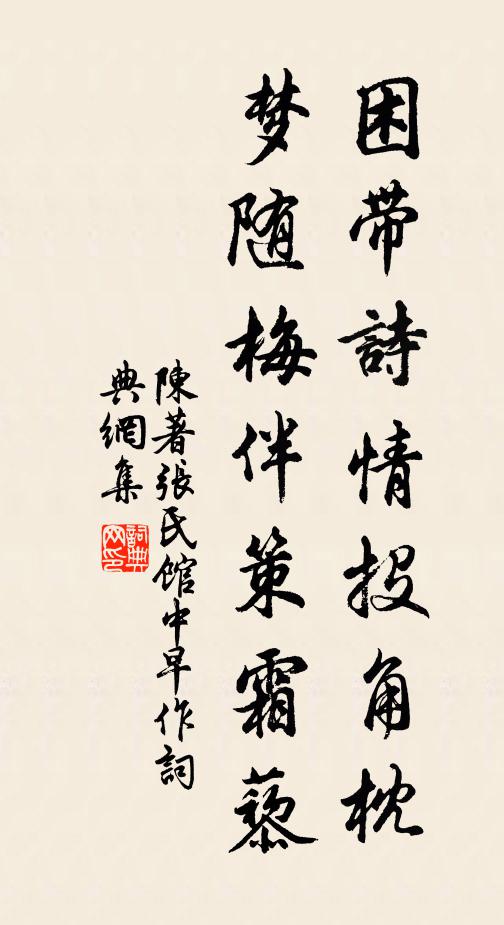 困帶詩情投角枕
梦随梅伴策霜藜
陳著張氏館中早作詞
典網集
詞典网印